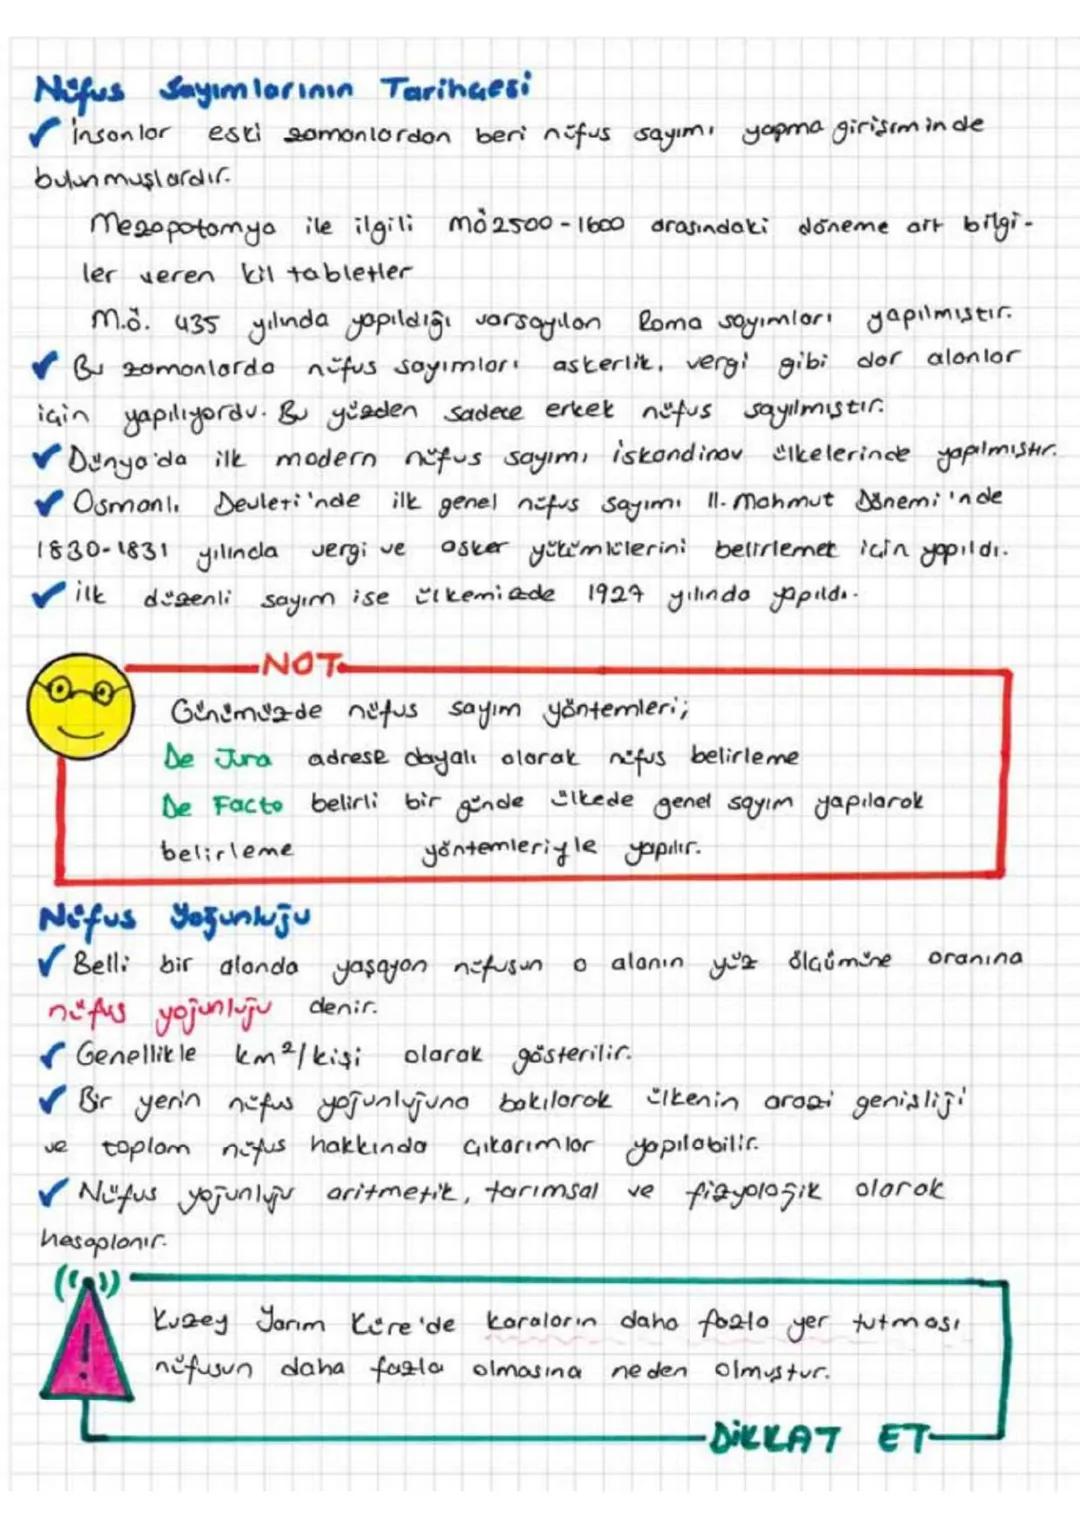 Nüfus Sayımlarının Tarihçesi
✓ İnsanlar eski zamanlardan beri nüfus sayımı yapma girişiminde
bulunmuşlardır.
Mezopotamya ile ilgili MÖ 2500-1600 arasındaki döneme ait bilgi-
ler veren kil tabletler
M.Ö. 435 yılında yapıldığı varsayılan Roma sayımları yapılmıştır.
✓ Bu zamanlarda nüfus sayımları askerlik, vergi gibi dar alanlar
için yapılıyordu. Bu yüzden sadece erkek nüfus sayılmıştır.
✓ Dünya'da ilk modern nüfus sayımı İskandinav ülkelerinde yapılmıştır.
✓ Osmanlı Devleti'nde ilk genel nüfus sayımı II. Mahmut Dönemi'nde
1830-1831 yılında vergi ve asker yükümlülerini belirlemek için yapıldı.
✓ İlk düzenli sayım ise ülkemizde 1927 yılında yapıldı.
NOT
Günümüzde nüfus sayım yöntemleri;
De Jura adrese dayalı olarak nüfus belirleme
De Facto belirli bir günde ülkede genel sayım yapılarak
belirleme yöntemleriyle yapılır.
Nüfus Yoğunluğu
✓ Belli bir alanda yaşayan nüfusun o alanın yüz ölçümüne oranına
nüfus yoğunluğu denir.
✓ Genellikle km²/kişi olarak gösterilir.
✓ Bir yerin nüfus yoğunluğuna bakılarak ülkenin arazi genişliği
ve toplam nüfus hakkında çıkarımlar yapılabilir.
✓ Nüfus yoğunluğu aritmetik, tarımsal ve fizyolojik olarak
hesaplanır.
Kuzey Yarım Küre'de karaların daha fazla yer tutması
nüfusun daha fazla olmasına neden olmuştur.
DİKKAT ET